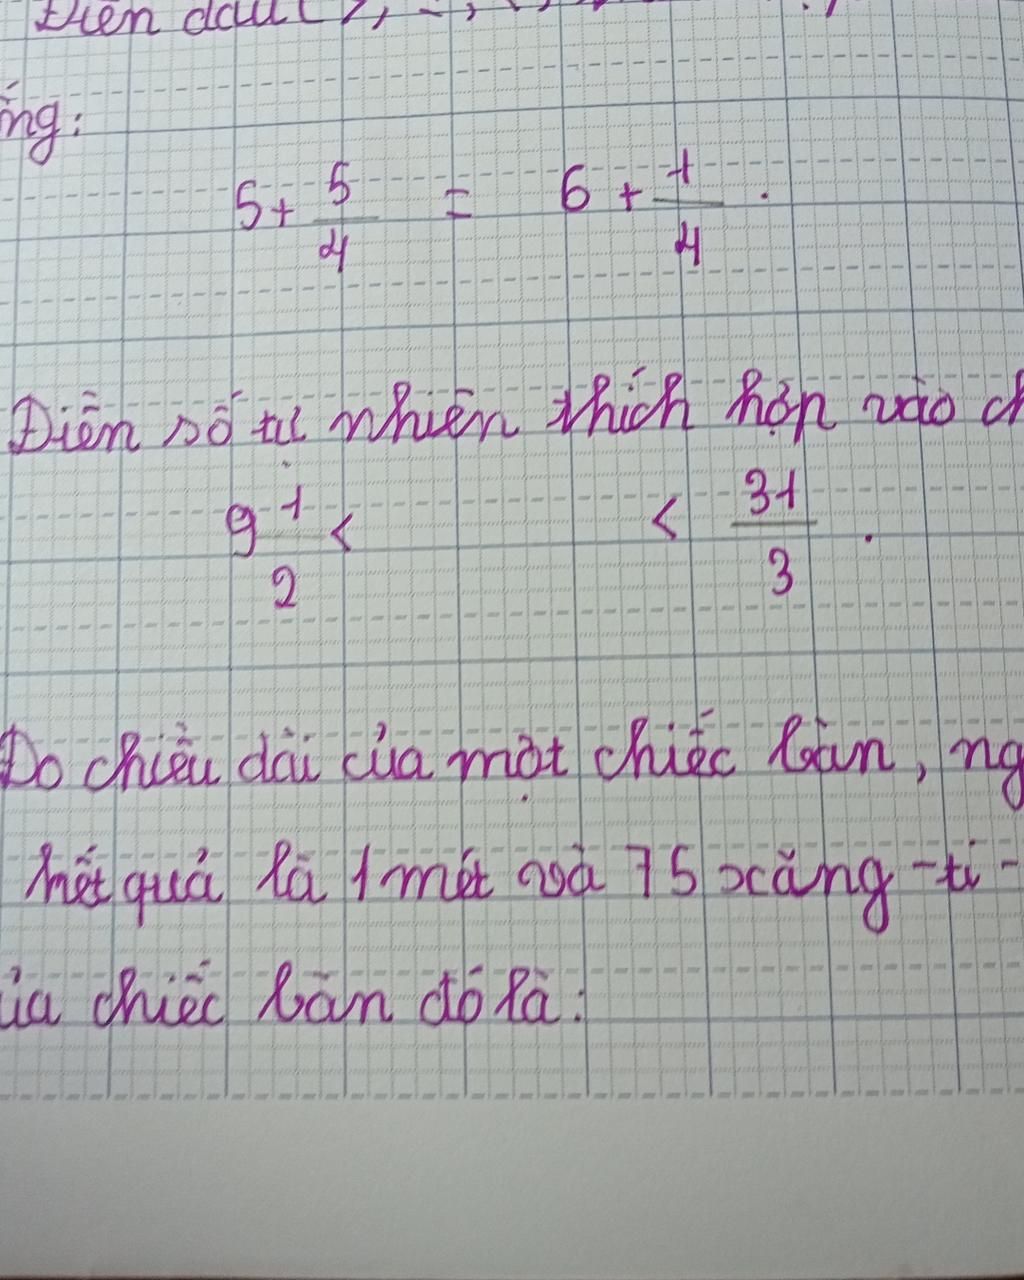 Điền dấu ( >,
ống:
5 + 5/4 = 6 + 1/4 .
Điền số tự nhiên thích hợp vào ch
9 1/2 < < 31/3 .
Đo chiều dài của một chiếc bàn, ng
kết quả là 1 mét và 75 xăng-ti-
ủa chiếc bàn đó là: